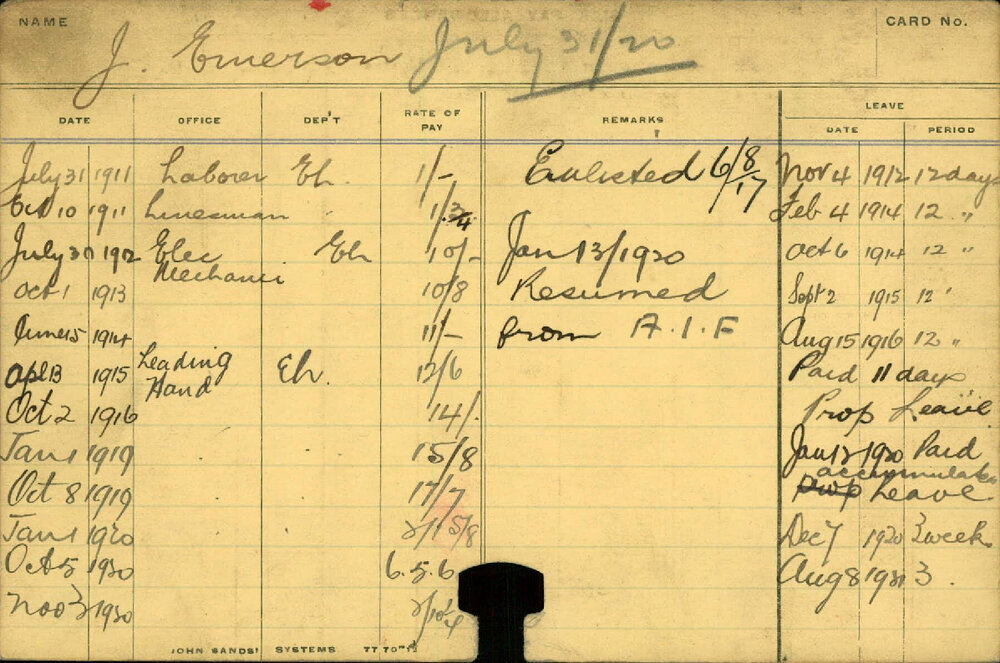 NAME
J. Emerson July 31/20
CARD No.
DATE OFFICE DEP'T RATE OF PAY REMARKS LEAVE
DATE PERIOD
July 31 1911 Laborer Eh. 1/- Enlisted 6/8/17 Nov 4 1912 12 days
Oct 10 1911 Linesman 1/ Feb 4 1914 12 "
July 30 1912 Elec Mechanic Eh 10/- Jan 13/1920 Oct 6 1914 12 "
Oct 1 1913 10/8 Resumed Sept 2 1915 12 "
June 15 1914 11/- from A.I.F Aug 15 1916 12 "
Apl 13 1915 Leading Hand Eh. 12/6 Paid 11 days
Oct 2 1916 14/. Prop Leave
Jan 1 1919 15/8 Jan 12 1920 Paid
accumulate
Oct 8 1919 17/7 prop Leave
Jan 1 1920 Dec 7 1920 3 week
Oct 5 1920 6.5.6 Aug 8 1921 3.
Nov 3 1920
JOHN SANDS' SYSTEMS